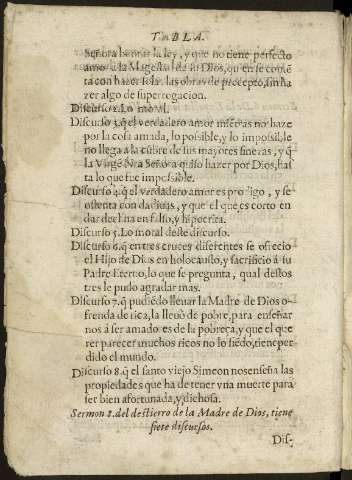 TABLA.
Señora honrar la ley, y que no tiene perfecto
amor a la Magestad de su Dios, quien se contẽ
ta con hazer sola las obras de precepto, sin ha
zer algo de supererogacion.
Discurso 2. Lo moral.
Discurso 3. q̃ el verdadero amor miẽtras no haze
por la cosa amada, lo possible, y lo impossible
no llega a la cũbre de sus mayores finezas, y q̃
la Virgẽ Nra Señora quiso hazer por Dios, has
ta lo que fue impossible.
Discurso 4. q̃ el verdadero amor es prodigo, y se
ostenta con dadiuas, y que el que es corto en
dar declina en falso, y hipocrita.
Discurso 5. Lo moral deste discurso.
Discurso 6. q̃ en tres cruces diferentes se ofrecio
el Hijo de Dios en holocausto, y sacrificio à su
Padre Eterno, lo que se pregunta, qual destos
tres le pudo agradar mas.
Discurso 7. q̃ pudiẽdo lleuar la Madre de Dios o-
frenda de rica, la lleuò de pobre, para enseñar
nos à ser amadores de la pobreça, y que el que
rer parecer muchos ricos no lo siẽdo, tiene per
dido el mundo.
Discurso 8. q̃ el santo viejo Simeon nos enseña las
propiedades que ha de tener vna muerte para
ser bien afortunada, y dichosa.
Sermon 8. del destierro de la Madre de Dios, tiene
siete discursos.
Dis-